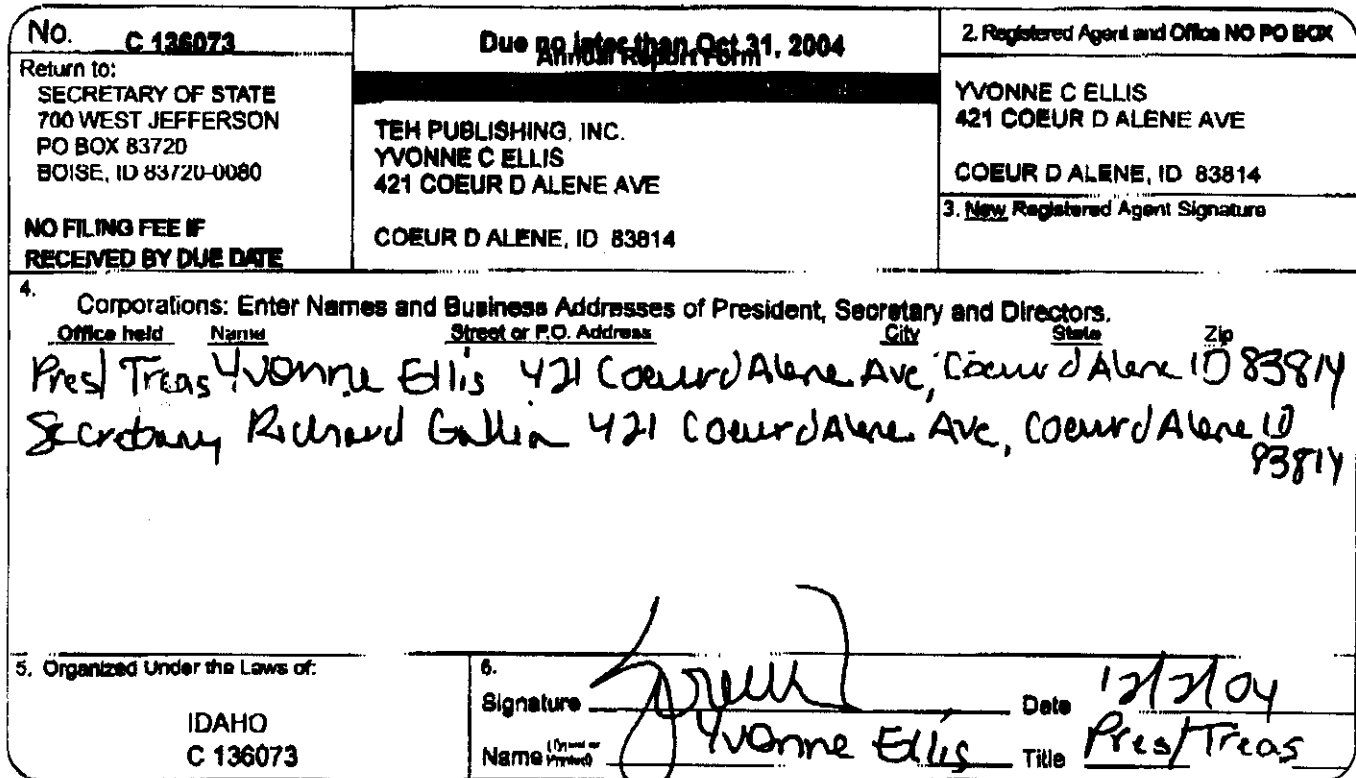 No. C 136073
Return to:
SECRETARY OF STATE
700 WEST JEFFERSON
PO BOX 83720
BOISE, ID 83720-0080
NO FILING FEE IF
RECEIVED BY DUE DATE
Due no later than Oct 31, 2004
Annual Report Form
TEH PUBLISHING, INC.
YVONNE C ELLIS
421 COEUR D ALENE AVE
COEUR D ALENE, ID 83814
2. Registered Agent and Office NO PO BOX
YVONNE C ELLIS
421 COEUR D ALENE AVE
COEUR D ALENE, ID 83814
3. New Registered Agent Signature
4. Corporations: Enter Names and Business Addresses of President, Secretary and Directors.
Office held Name Street or P.O. Address City State Zip
Pres/Treas Yvonne Ellis 421 Coeur d Alene Ave, Coeur d Alene ID 83814
Secretary Richard 421 Coeur d Alene Ave, Coeur d Alene ID
83814
5. Organized Under the Laws of:
IDAHO
C 136073
6.
Signature Date 12/2/04
Name (Typed or Printed) Yvonne Ellis Title Pres/Treas